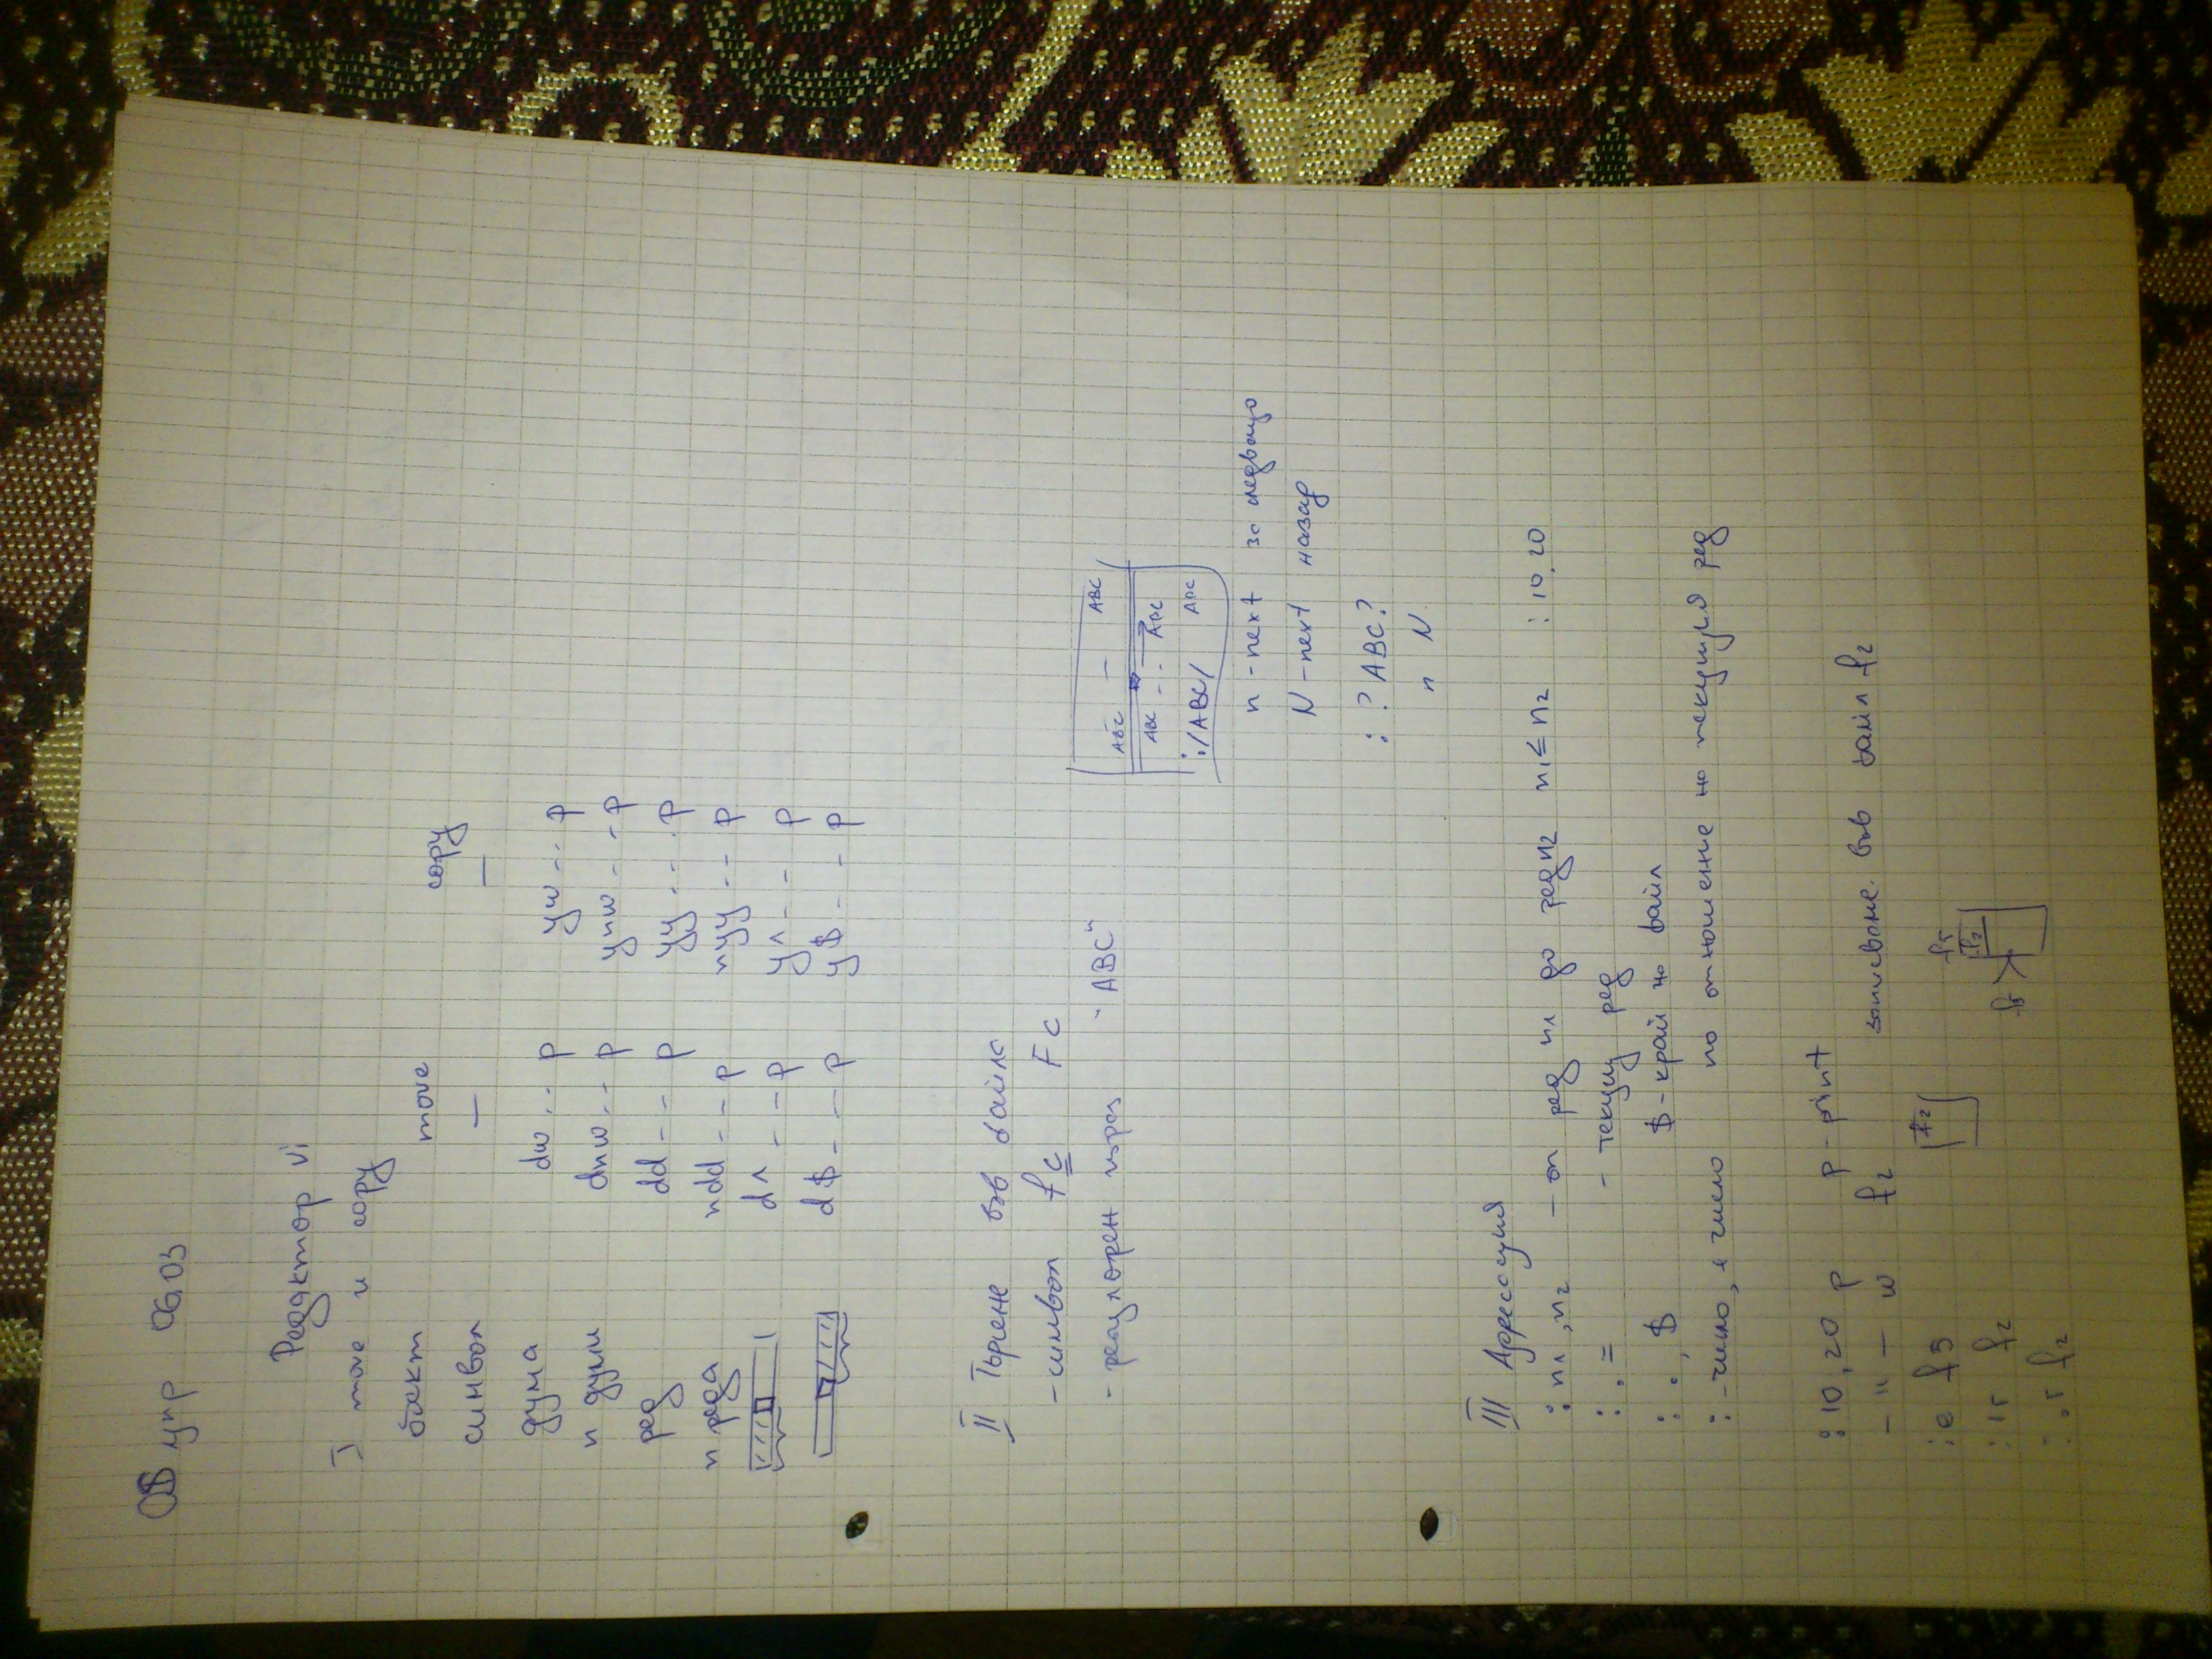 OS упр 06.03
Редактор vi
I move и copy
обект move copy
символ — —
дума dw .. p yw ... p
n думи dnw .. p ynw - .. p
ред dd - - p yy ... p
n реда ndd - - p nyy - - p
d^ - - - p y^ - - - p
d$ - - - p y$ - - - p
II Търсене във файла
- символ fc Fc
- регулярен израз "ABC"
ABC — ABC
ABC - .. ABC
:/ABC/ ABC
n - next за следващо
N - next назад
: ? ABC?
n N
III Адресация
: n1, n2 — от ред n1 до ред n2 n1 ≤ n2 : 10, 20
: . = - текущ ред
: . , $ $ - край на файл
: -число, + число по отношение на текущия ред
: 10, 20 p p - print
- " - w f2 записване във файл f2
: e f3
: r f2
: . r f2
f2 f1 f2 f1